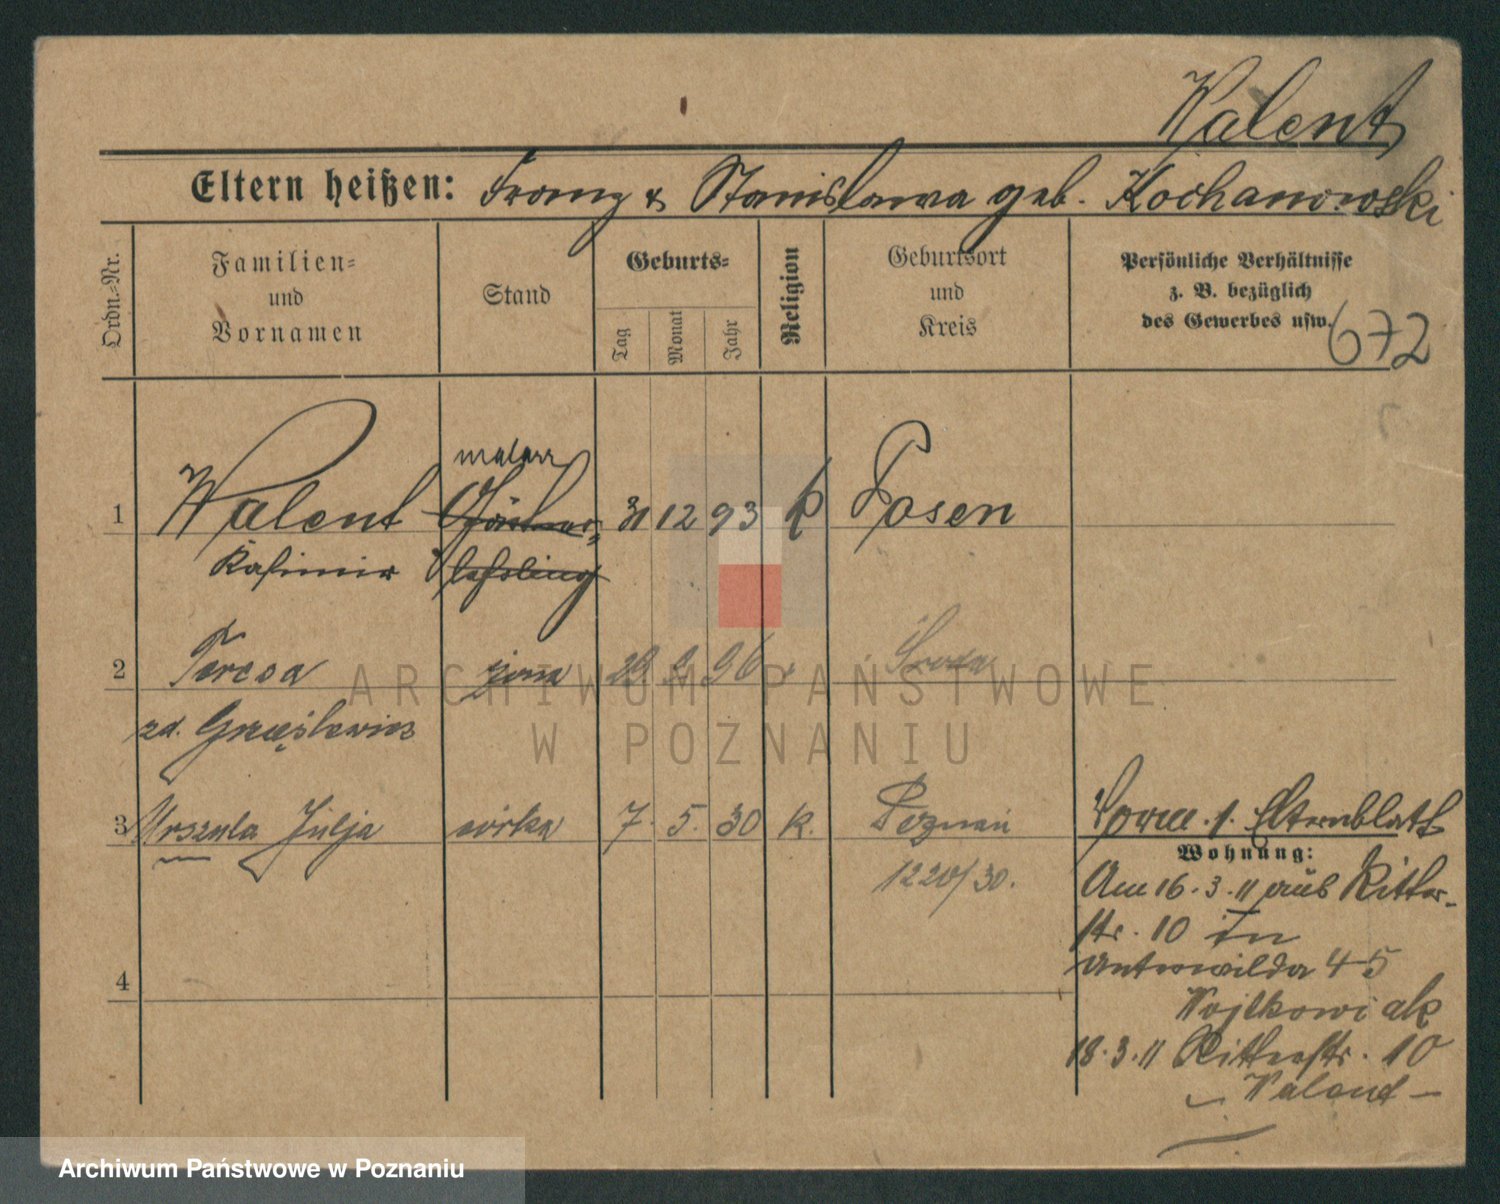 Walent
Eltern heißen: Franz & Stanislawa geb. Kochanowski
Ordn.=Nr.
Familien=
und
Vornamen
Stand
Geburts=
Tag
Monat
Jahr
Religion
Geburtsort
und
Kreis
Persönliche Verhältnisse
z. B. bezüglich
des Gewerbes usw.
672
malarz
1 Walent 31 12 93 k Posen
Kasimir lehrling
2 Teresa żona 9 96 Środa
zd. Gręźlewicz
3 Urszula Julja córka 7. 5. 30 k. Poznań
1220/30.
1. Elternblatt
Wohnung:
Am 16.3.11 aus Ritter-
str. 10 in
Unterwilda 45
Wojtkowiak
18.3.11 Ritterstr. 10
Walent
4
ARCHIWUM PAŃSTWOWE
W POZNANIU
Archiwum Państwowe w Poznaniu